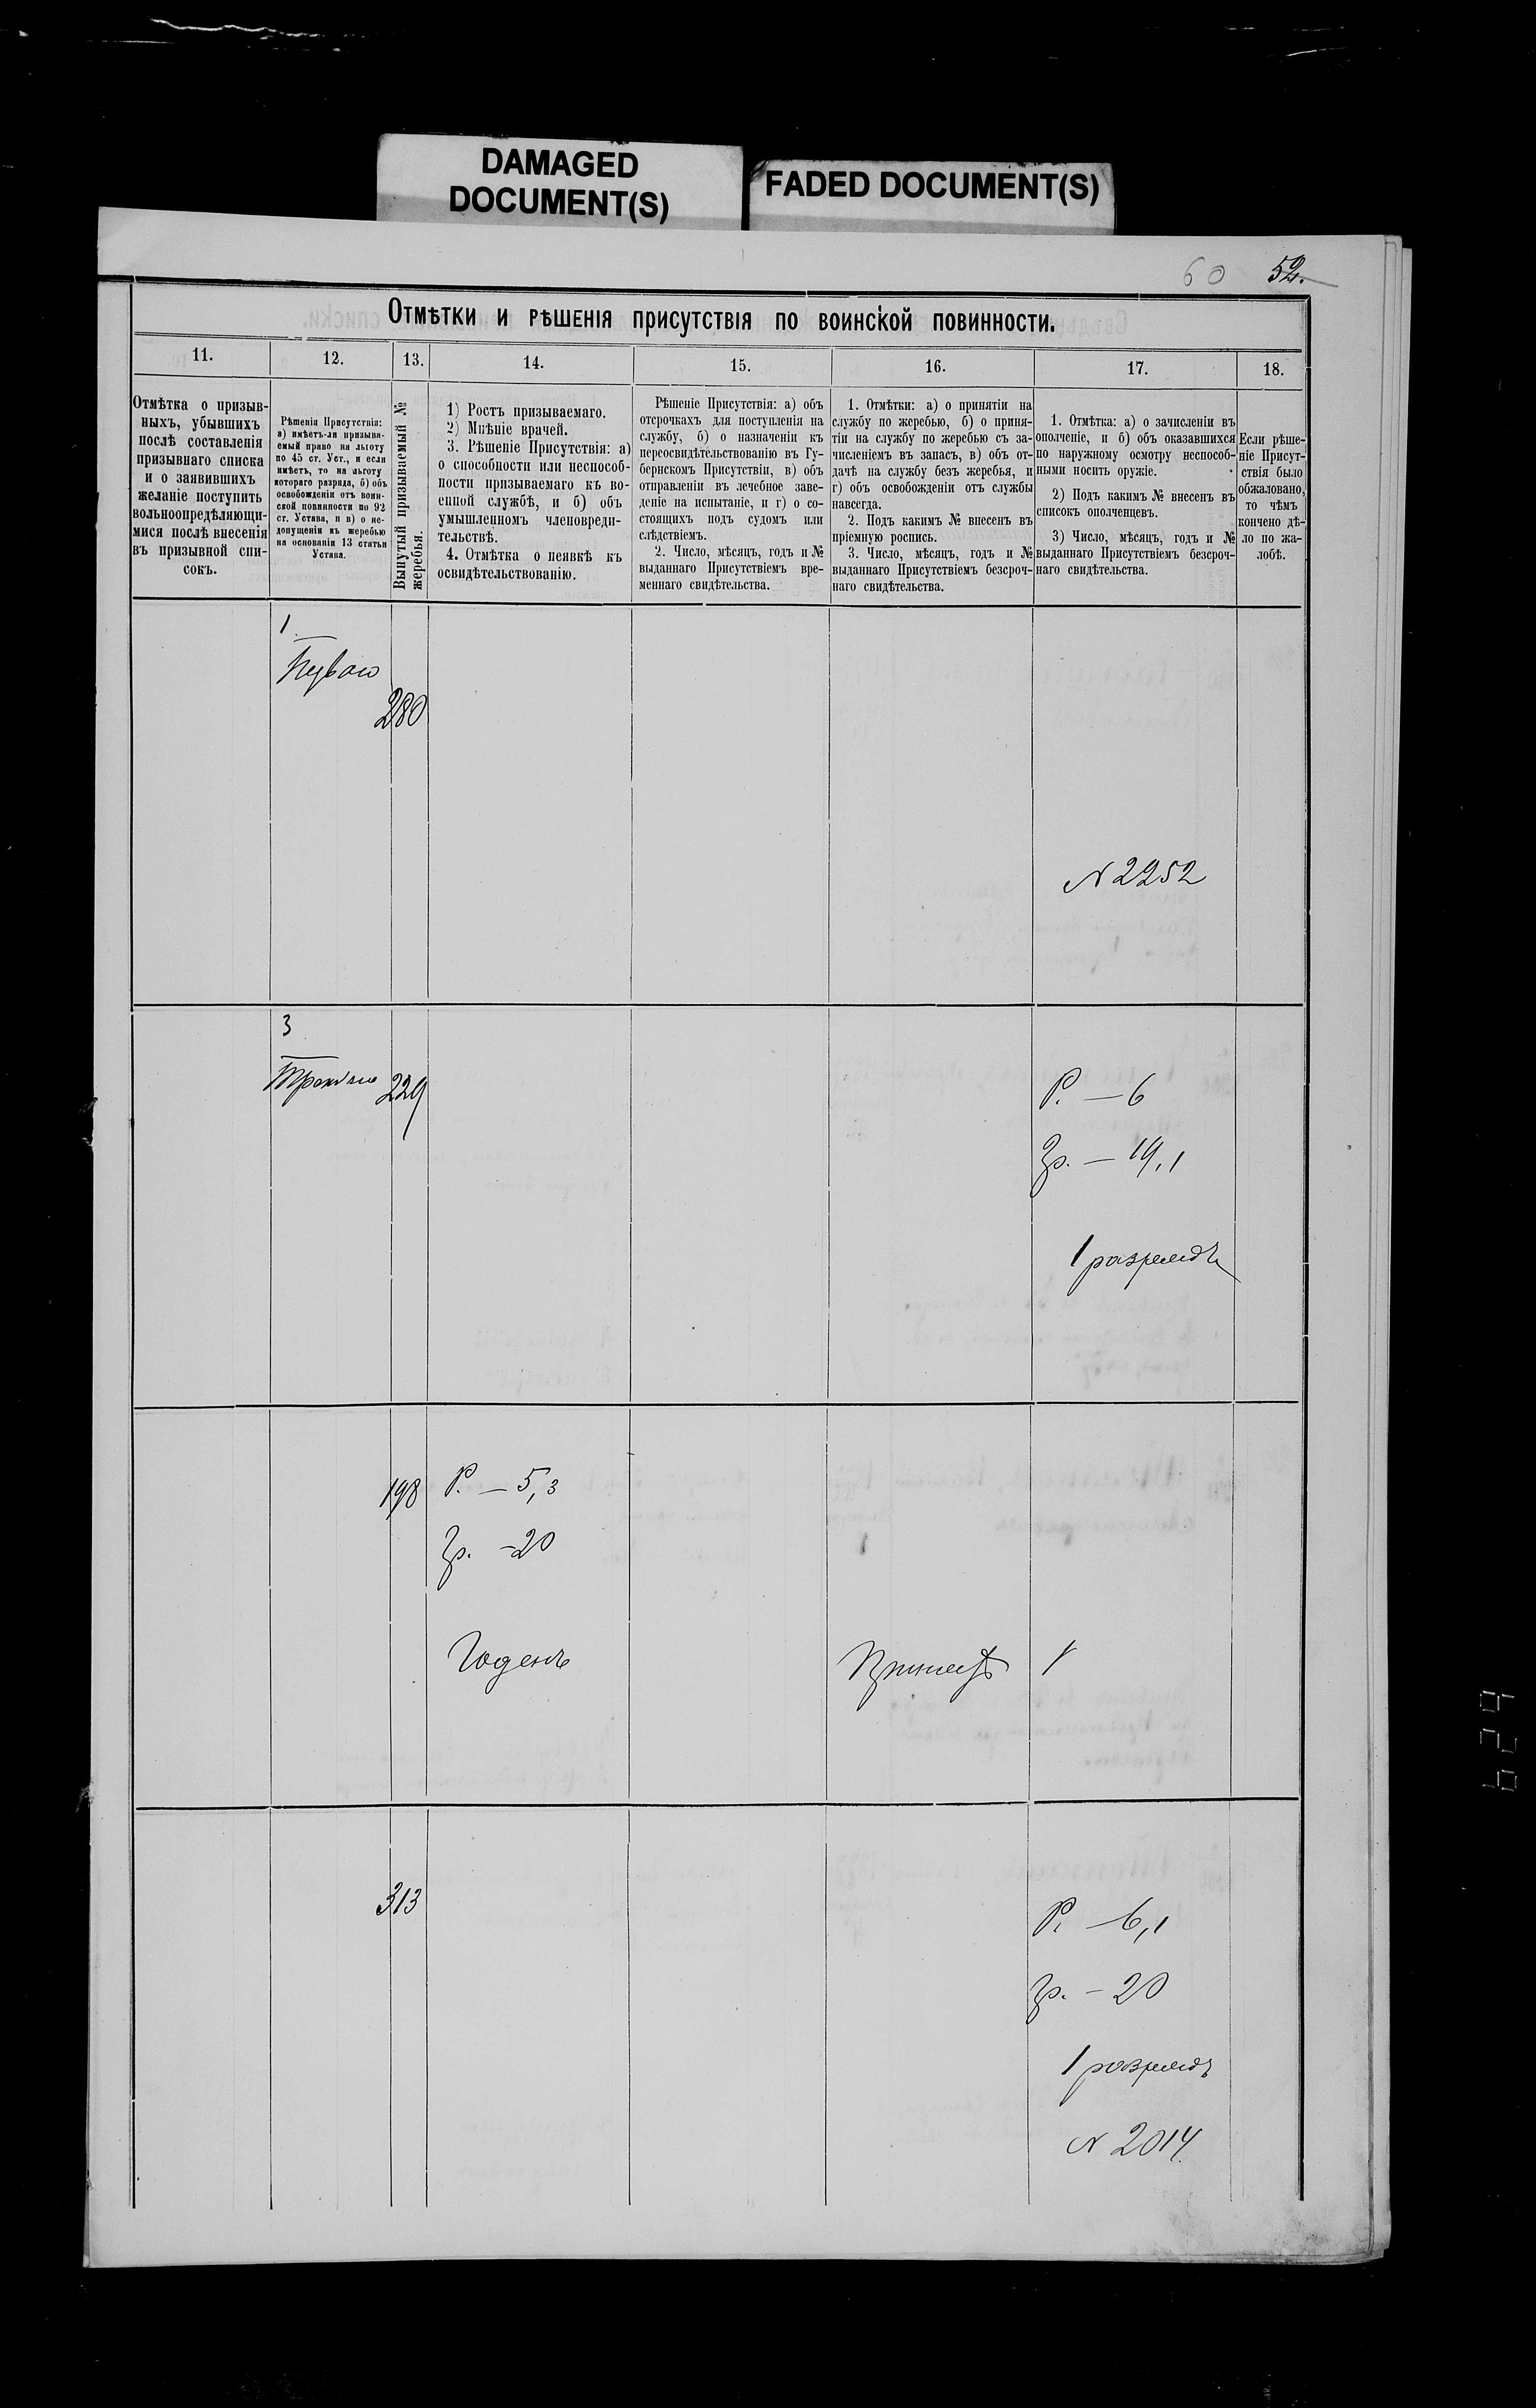 DAMAGED
DOCUMENT(S)
FADED DOCUMENT(S)
60 52.
Отмѣтки и рѣшенія присутствія по воинской повинности.
11. 12. 13. 14. 15. 16. 17. 18.
Отмѣтка о призыв-
ныхъ, убывшихъ
послѣ составленія
призывнаго списка
и о заявившихъ
желаніе поступить
вольноопредѣляющи-
мися послѣ внесенія
въ призывной спи-
сокъ.
Рѣшенія Присутствія:
а) имѣетъ-ли призыва-
емый право на льготу
по 45 ст. Уст., и если
имѣетъ, то на льготу
котораго разряда, б) объ
освобожденіи отъ воин-
ской повинности по 92
ст. Устава, и в) о не-
допущеніи къ жеребью
на основаніи 13 статьи
Устава.
Вынутый призываемый №
жеребья.
1) Ростъ призываемаго.
2) Мнѣніе врачей.
3. Рѣшеніе Присутствія: а)
о способности или неспособ-
ности призываемаго къ во-
енной службѣ, и б) объ
умышленномъ членовреди-
тельствѣ.
4. Отмѣтка о неявкѣ къ
освидѣтельствованію.
Рѣшеніе Присутствія: а) объ
отсрочкахъ для поступленія на
службу, б) о назначеніи къ
переосвидѣтельствованію въ Гу-
бернскомъ Присутствіи, в) объ
отправленіи въ лечебное заве-
деніе на испытаніе, и г) о со-
стоящихъ подъ судомъ или
слѣдствіемъ.
2. Число, мѣсяцъ, годъ и №
выданнаго Присутствіемъ вре-
меннаго свидѣтельства.
1. Отмѣтки: а) о принятіи на
службу по жеребью, б) о приня-
тіи на службу по жеребью съ за-
численіемъ въ запасъ, в) объ от-
дачѣ на службу безъ жеребья, и
г) объ освобожденіи отъ службы
навсегда.
2. Подъ какимъ № внесенъ въ
пріемную роспись.
3. Число, мѣсяцъ, годъ и №
выданнаго Присутствіемъ безсроч-
наго свидѣтельства.
1. Отмѣтка: а) о зачисленіи въ
ополченіе, и б) объ оказавшихся
по наружному осмотру неспособ-
ными носить оружіе.
2) Подъ какимъ № внесенъ въ
списокъ ополченцевъ.
3) Число, мѣсяцъ, годъ и №
выданнаго Присутствіемъ безсроч-
наго свидѣтельства.
Если рѣше-
ніе Присут-
ствія было
обжаловано,
то чѣмъ
кончено дѣ-
ло по жа-
лобѣ.
1
280
N 2252
3
229
Р. — 6
Гр. — 19,1
1 разрядъ
198
Р. — 5,3
Гр. — 20
Годенъ
Принятъ
313
Р. — 6,1
Гр. — 20
1 разрядъ
N 2014
629